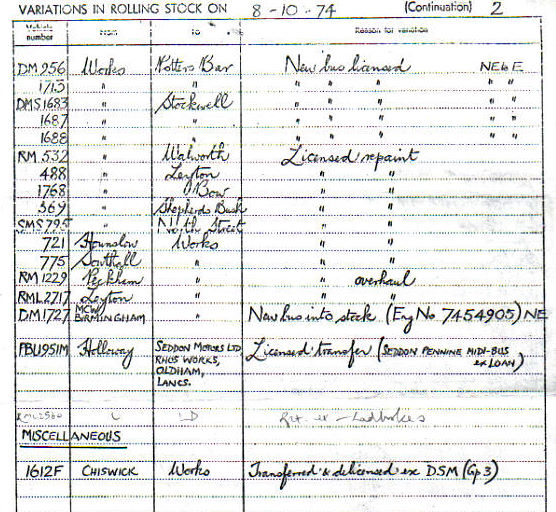 VARIATIONS IN ROLLING STOCK ON 8-10-74 (Continuation) 2
number Reason for variation
DM 956 Works Potters Bar New bus licensed NEloE
1713 " " " " " " "
DMS 1683 " Stockwell " " " " "
1687 " " " " " " "
1688 " " " " " " "
RM 532 " Walworth Licensed repaint
488 " Leyton " "
1768 " Bow " "
369 " Shepherds Bush " "
SMS 795 " North Street " "
721 Hounslow Works " "
775 Southall " " "
RM 1229 Peckham " " overhaul
RML 2717 Leyton " " "
DM 1727 MCW BIRMINGHAM " New bus into stock (Eng No 7454905) NE
PBU951M Holloway SEDDON MOTORS LTD Licensed transfer (SEDDON PENNINE MIDI-BUS
RHOS WORKS, ex LOAN)
OLDHAM,
LANCS.
RML2560 Ladbrokes
MISCELLANEOUS
1612F CHISWICK Works Transferred & delicensed ex DSM (Gp 3)